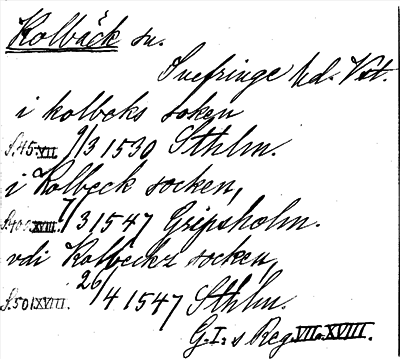 Kolbäck sn.
Snefringe hd. Vstl.
i kolbeks soken
S.45.VII. 9/3 1530 Sthlm.
i Kolbeck socken,
XVIII. 7/3 1547 Gripsholm.
vdi Kolbeckz socken,
S.50 XVIII. 26/4 1547 Sthlm.
G.I:s Reg. VII. XVIII.